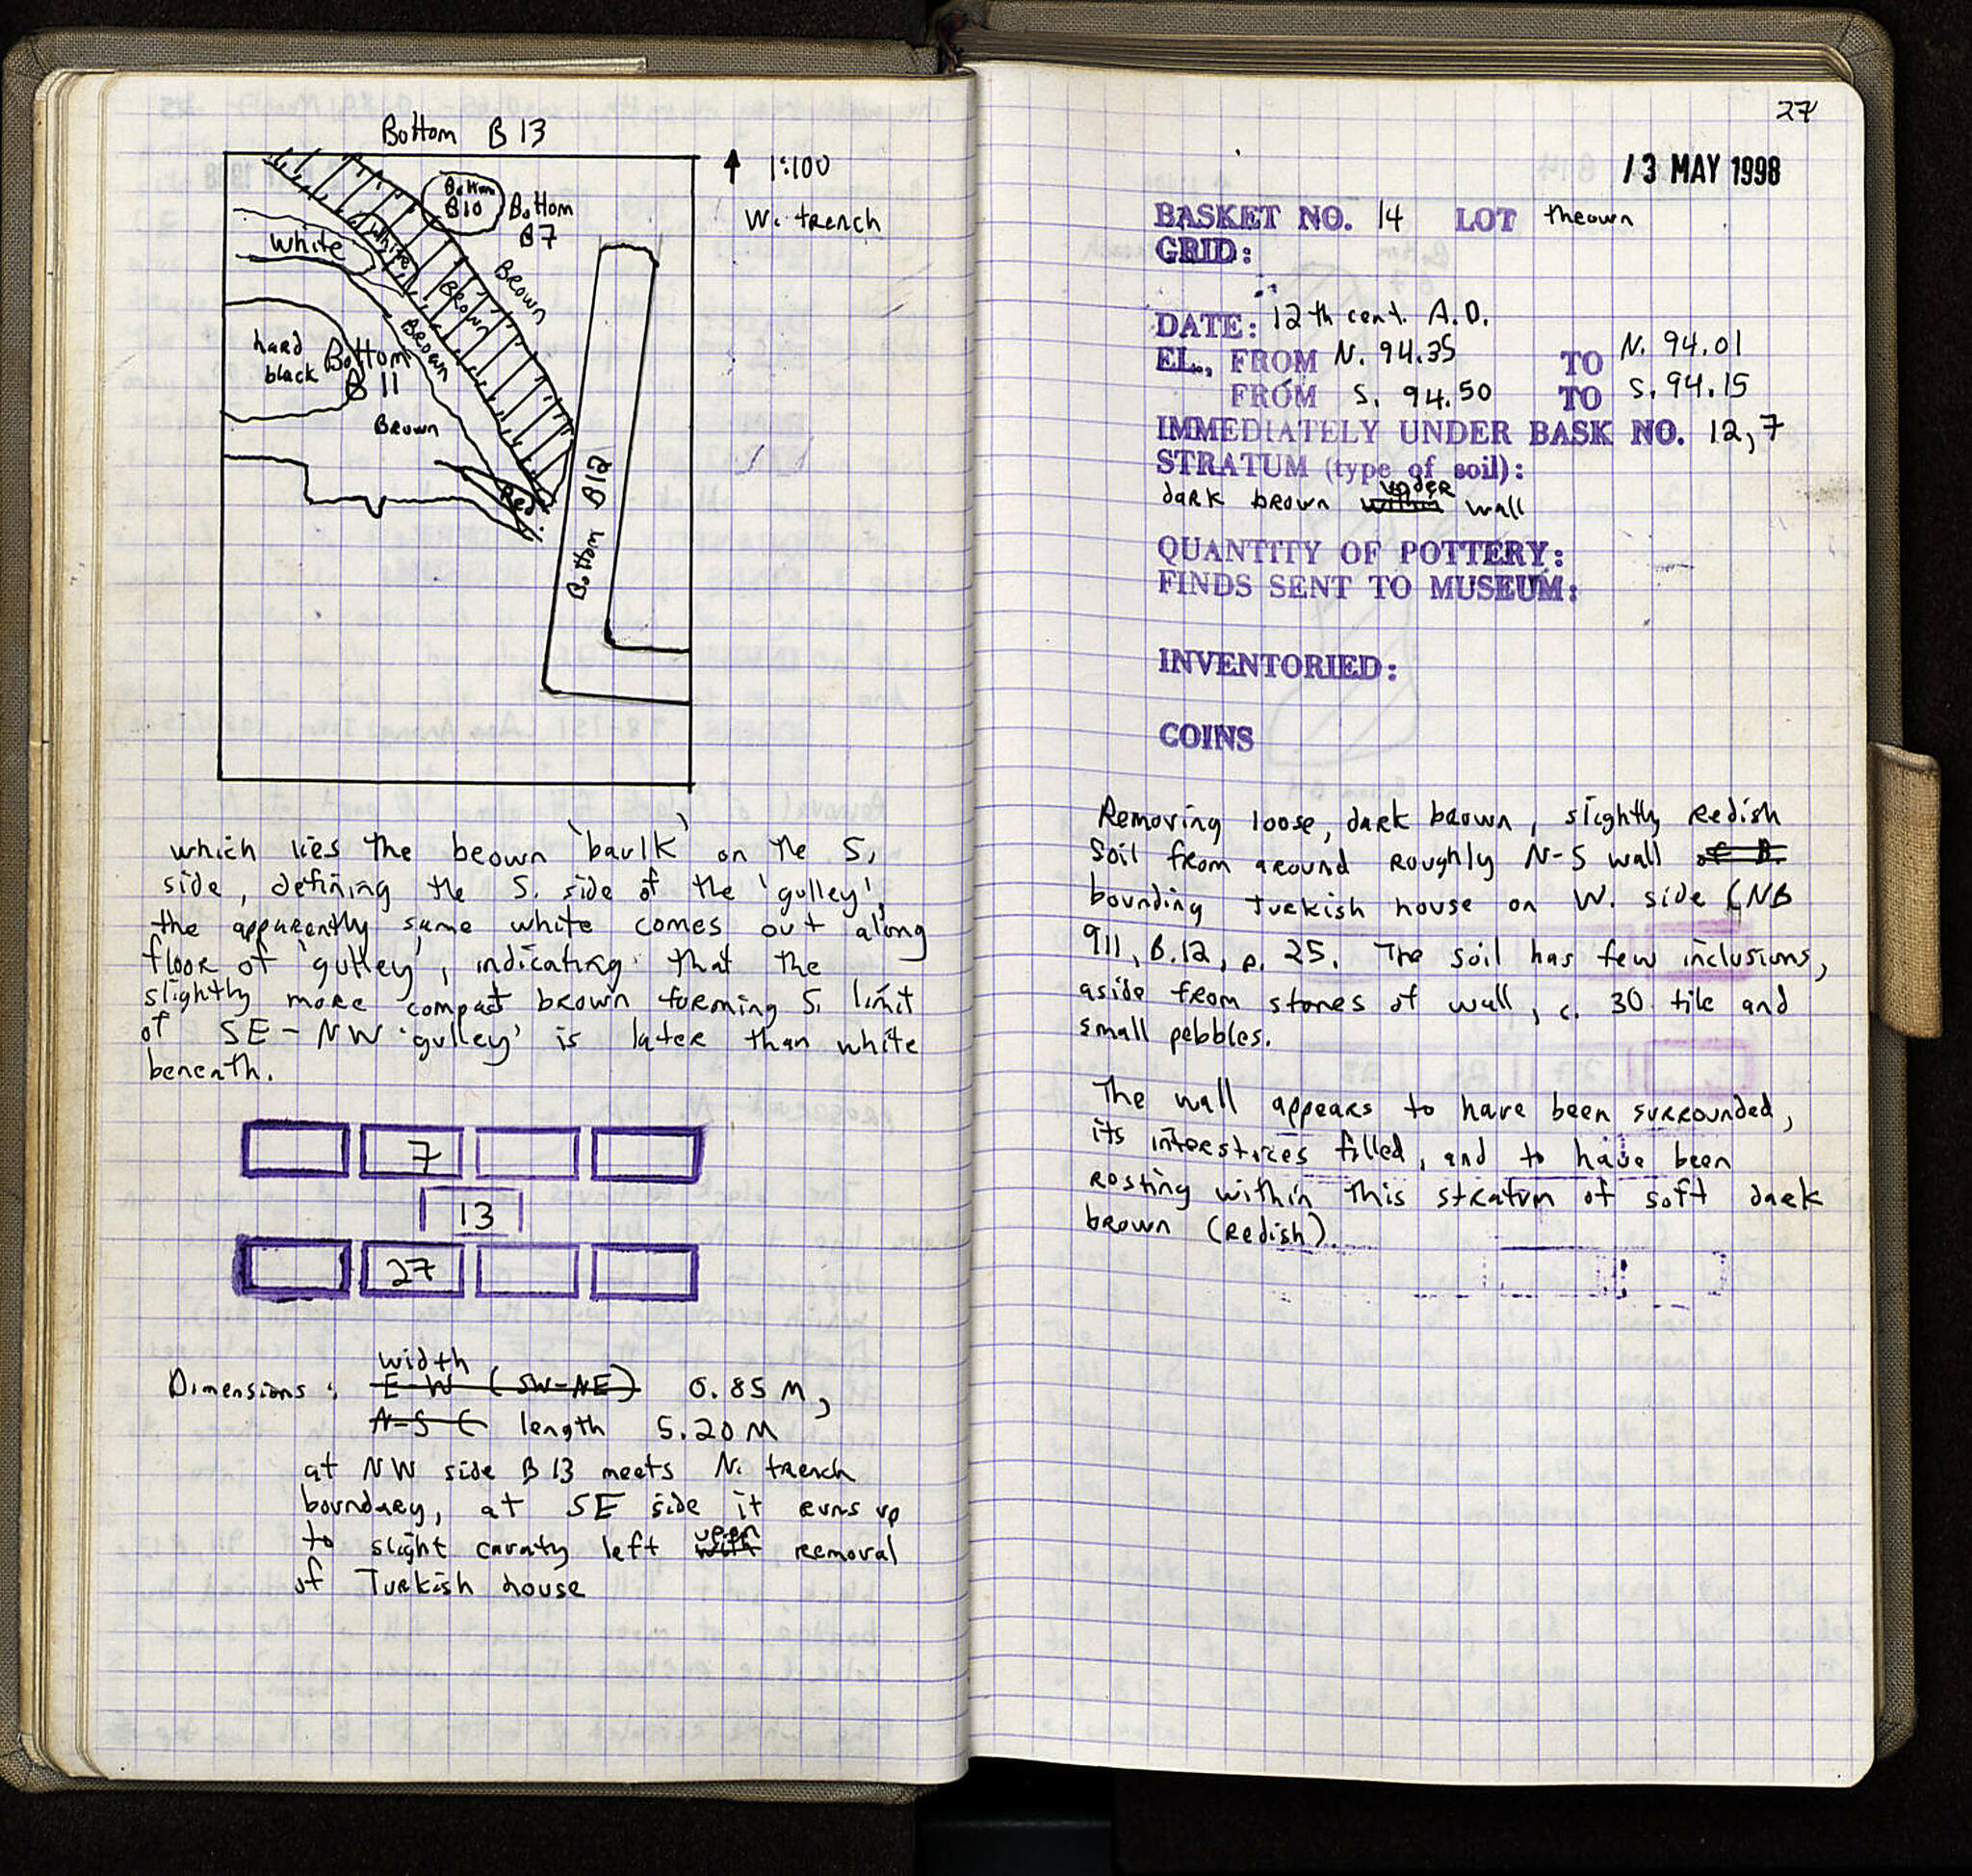 Bottom B 13
1:100
W. trench
Bottom
B10
Bottom
B7
White
White
Brown
Brown
Brown
hard
black
Bottom
B 11
Brown
Red
Bottom B12
which lies the brown 'baulk' on the S.
side, defining the S. side of the 'gulley',
the apparently same white comes out along
floor of 'gulley', indicating that the
slightly more compact brown forming S. limit
of SE - NW 'gulley' is later than white
beneath.
7
13
27
width
Dimensions: E-W (SW-NE) 0.85 M,
N-S ( length 5.20 M
at NW side B 13 meets N. trench
boundary, at SE side it runs up
upon
to slight cavaty left with removal
of Turkish house
27
13 MAY 1998
BASKET NO. 14 LOT thrown
GRID:
DATE: 12th cent. A.D.
EL., FROM N. 94.35 TO N. 94.01
FROM S. 94.50 TO S. 94.15
IMMEDIATELY UNDER BASK NO. 12, 7
STRATUM (type of soil):
under
dark brown within wall
QUANTITY OF POTTERY:
FINDS SENT TO MUSEUM:
INVENTORIED:
COINS
Removing loose, dark brown, slightly redish
soil from around roughly N-S wall of B.
bounding Turkish house on W. side (NB
911, B.12, p. 25. The soil has few inclusions,
aside from stones of wall, c. 30 tile and
small pebbles.
The wall appears to have been surrounded,
its interstices filled, and to have been
rosting within this stratum of soft dark
brown (redish).